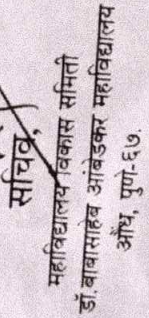 सचिव,
महाविद्यालय विकास समिती
डॉ.बाबासाहेब आंबेडकर महाविद्यालय
औंध, पुणे-६७.